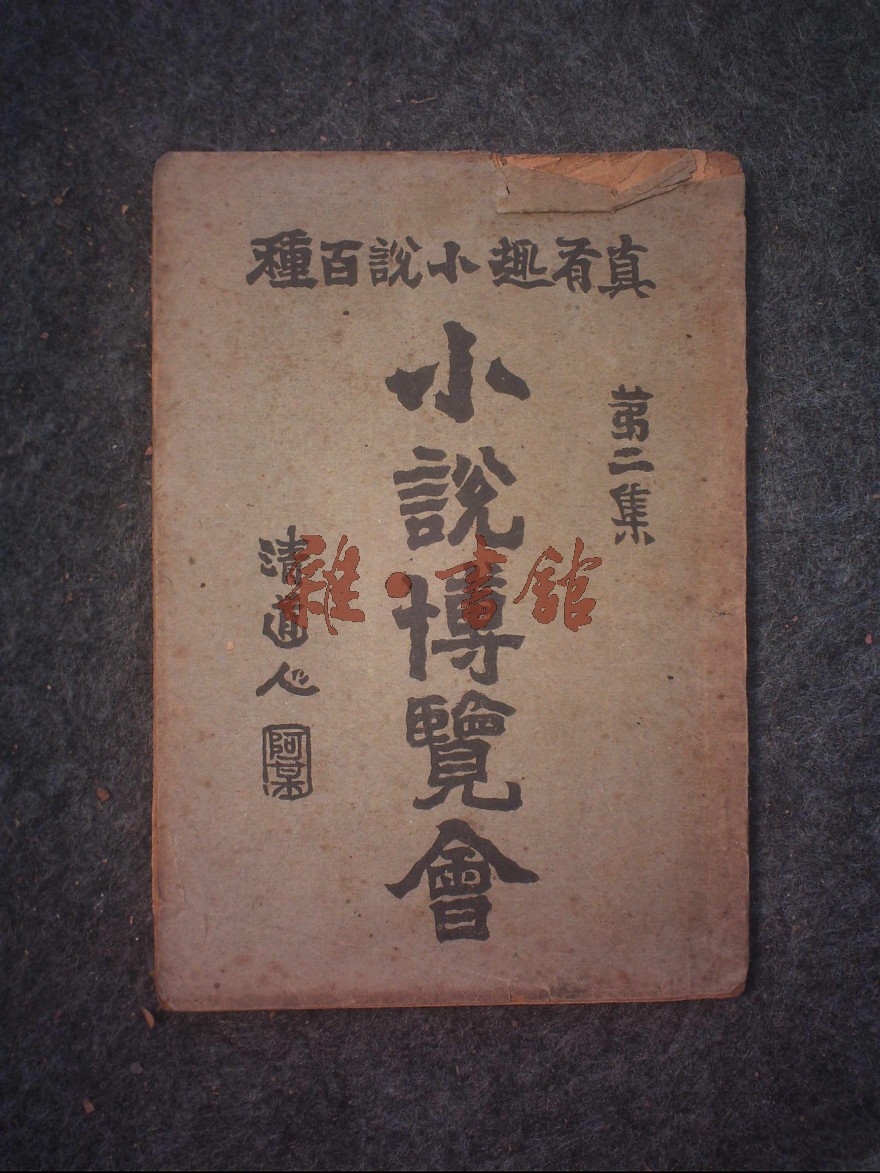 真有趣小說百種
第二集
小說博覽會
清道人
雜·書館